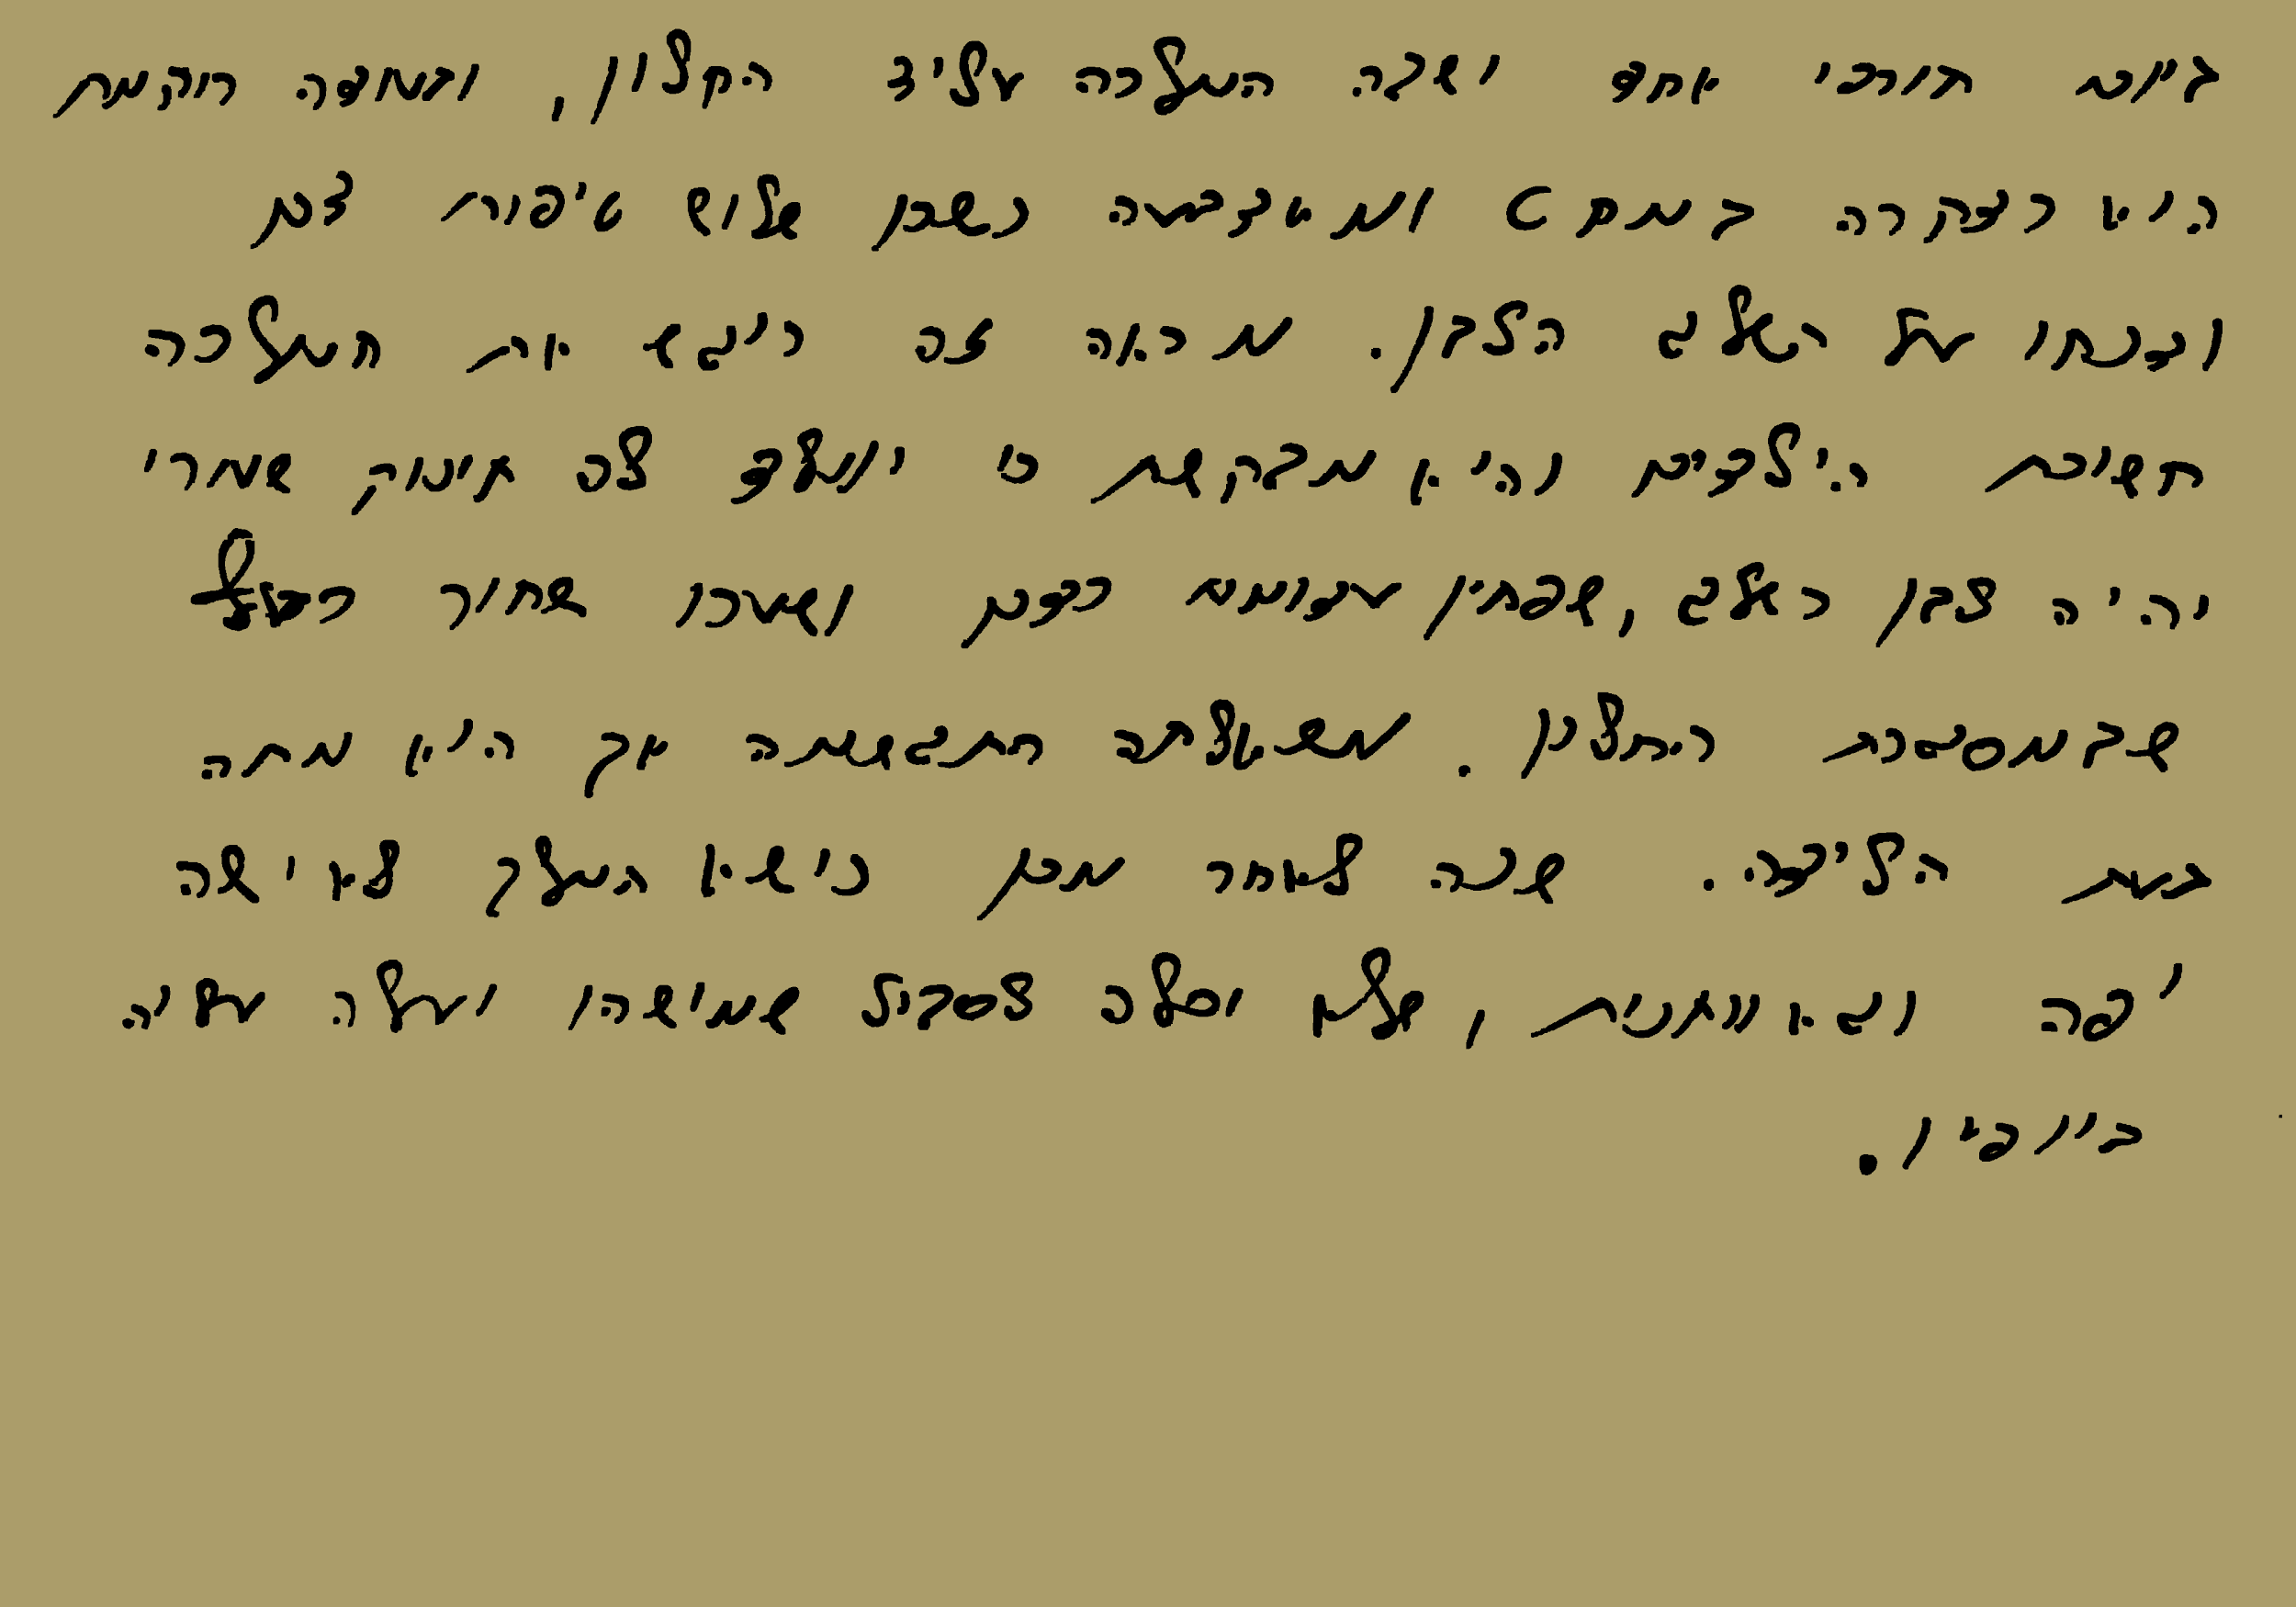 ביום חורפי אחד ישבה המלכה על יד החלון, ובעודה רוקמת
היא נדקרה במחט ומאצבעה שלוש טיפות דם
וצנחו על השלג הלבן. מראה זה הביא את המלכה
חשוכת הילדים והיא מבקשת כי יוולד לה תינוק, שעורו
יהיה לבן כשלג, שפתיו אדומות כדם ושערו שחור
שבמסגרת החלון. משאלתה התגשמה אך היא מתה
בעת הלידה. שנה לאחר מכן נישא המלך לאישה
יפה וגאוותנית, שלא יכלה לסבול שמישהו יעלה עליה
ביופיו.